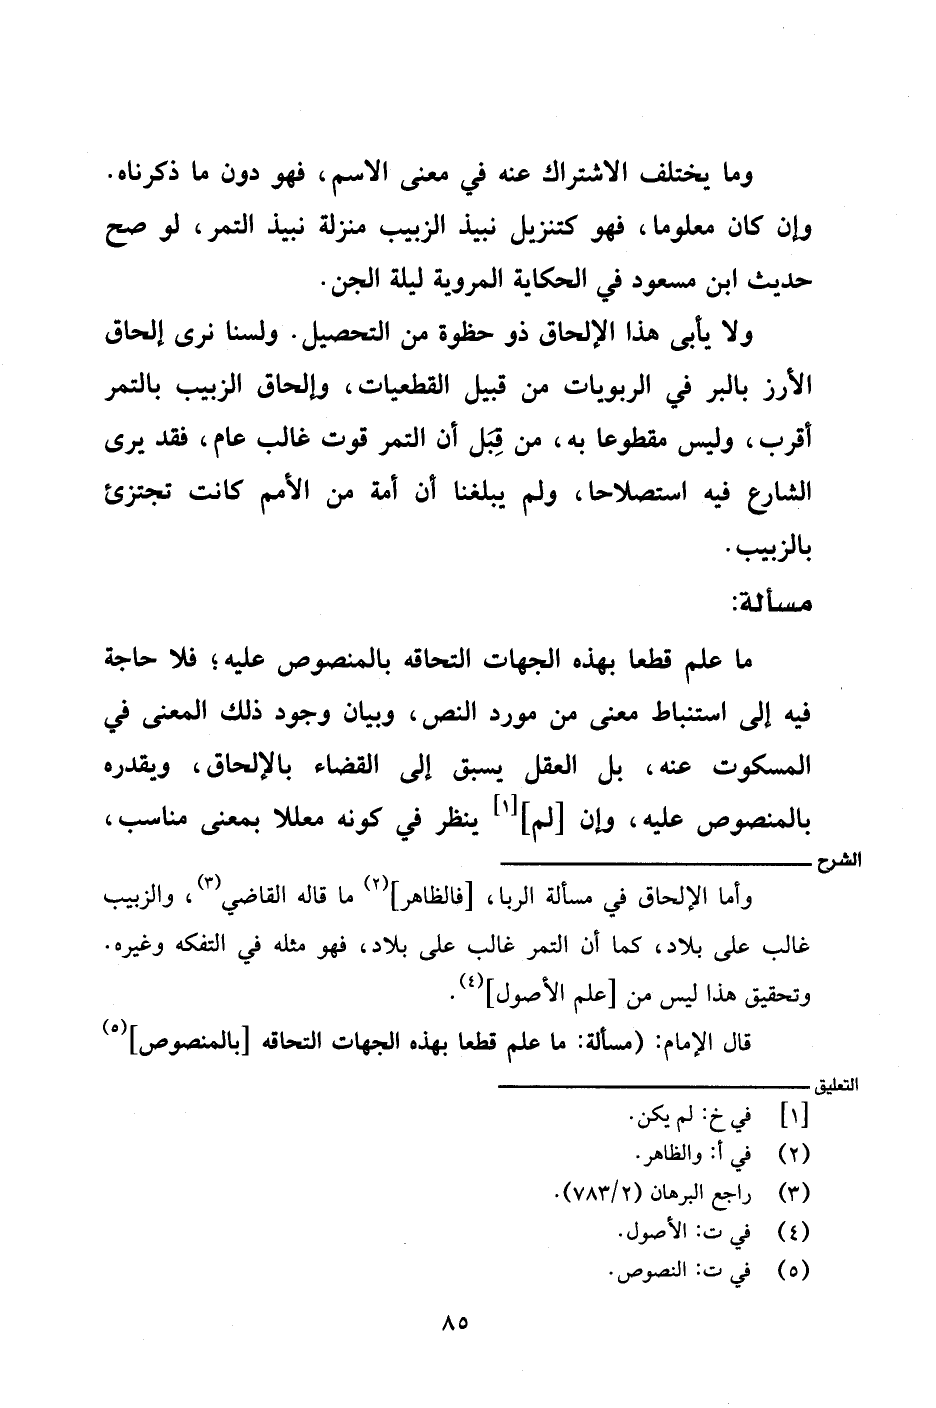 وما يختلف الاشتراك عنه في معنى الاسم، فهو دون ما ذكرناه.
وإن كان معلوما، فهو كتنزيل نبيذ الزبيب منزلة نبيذ التمر، لو صح
حديث ابن مسعود في الحكاية المروية ليلة الجن.
ولا يأبى هذا الإلحاق ذو حظوة من التحصيل. ولسنا نرى إلحاق
الأرز بالبر في الربويات من قبيل القطعيات، وإلحاق الزبيب بالتمر
أقرب، وليس مقطوعا به، من قِبَل أن التمر قوت غالب عام، فقد يرى
الشارع فيه استصلاحا، ولم يبلغنا أن أمة من الأمم كانت تجتزئ
بالزبيب.
مسألة:
ما علم قطعا بهذه الجهات التحاقه بالمنصوص عليه؛ فلا حاجة
فيه إلى استنباط معنى من مورد النص، وبيان وجود ذلك المعنى في
المسكوت عنه، بل العقل يسبق إلى القضاء بالإلحاق، ويقدره
بالمنصوص عليه، وإن [لم][١] ينظر في كونه معللا بمعنى مناسب،
الشرح
وأما الإلحاق في مسألة الربا، [فالظاهر](٢) ما قاله القاضي(٣)، والزبيب
غالب على بلاد، كما أن التمر غالب على بلاد، فهو مثله في التفكه وغيره.
وتحقيق هذا ليس من [علم الأصول](٤).
قال الإمام: (مسألة: ما علم قطعا بهذه الجهات التحاقه [بالمنصوص](٥)
التعليق
[١] في خ: لم يكن.
(٢) في أ: والظاهر.
(٣) راجع البرهان (٧٨٣/٢).
(٤) في ت: الأصول.
(٥) في ت: النصوص.
٨٥